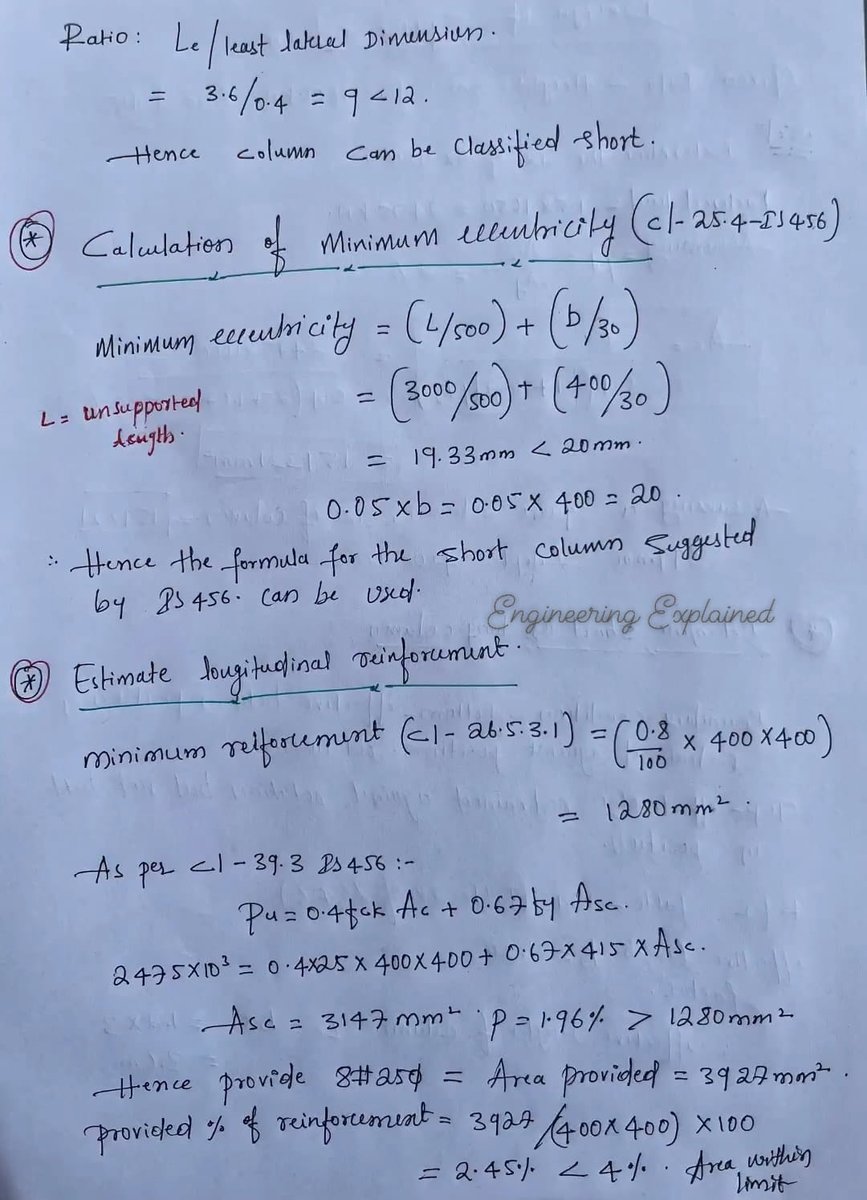 Ratio: Le/least lateral Dimension.
= 3.6/0.4 = 9 <12.
Hence column can be Classified short.
* Calculation of Minimum eccentricity (cl-25.4-IS456)
Minimum eccentricity = (L/500) + (b/30)
L = unsupported length.
= (3000/500) + (400/30)
= 19.33mm < 20mm.
0.05 x b = 0.05 x 400 = 20.
∴ Hence the formula for the short column suggested
by IS 456. can be used.
Engineering Explained
* Estimate longitudinal reinforcement.
minimum relforcement (cl-26.5.3.1) = (0.8/100 x 400 x 400)
= 1280mm².
As per cl-39.3 IS456:-
Pu = 0.4fck Ac + 0.67fy Asc.
2475x10³ = 0.4x25 x 400x400 + 0.67x415 x Asc.
Asc = 3147mm² P = 1.96% > 1280mm²
Hence provide 8#25ϕ = Area provided = 3927mm².
provided % of reinforcement = 3927/(400x400) x100
= 2.45% < 4%. Area within limit